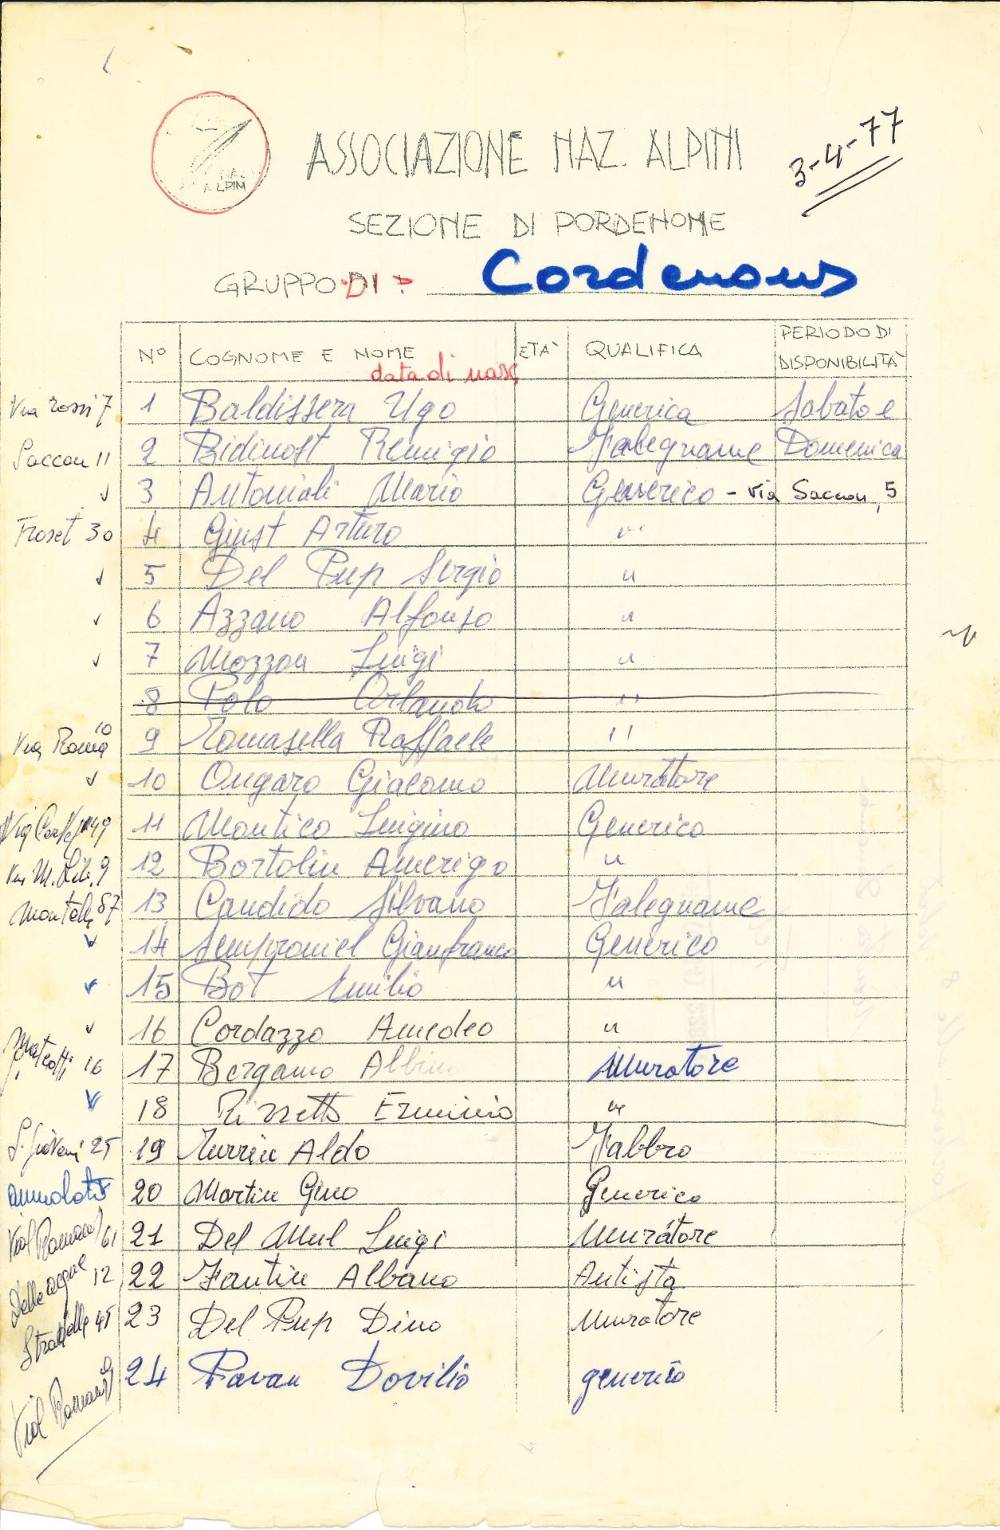 ASSOCIAZIONE NAZ. ALPINI
3-4-77
SEZIONE DI PORDENONE
GRUPPO DI: Cordenons
N° COGNOME E NOME data di nasc. ETÀ QUALIFICA PERIODO DI DISPONIBILITÀ
Via Rossi 7 1 Baldissera Ugo Generica Sabato e
Saccon 11 2 Bidinost Remigio Falegname Domenica
3 Antoniali Mario Generico - Via Saccon, 5
Froset 30 4 Giust Arturo "
5 Del Pup Sergio "
6 Azzano Alfonso "
7 Mozzon Luigi "
8 Polo Orlando "
Via Roma 10 9 Romasella Raffaele "
10 Ongaro Giacomo Muratore
49 11 Montico Luigino Generico
9 12 Bortolin Amerigo "
87 13 Candido Silvano Falegname
14 Semproniel Gianfranco Generico
15 Bot Emilio "
16 Cordazzo Amedeo "
Matteotti 16 17 Bergamo Albin Muratore
18 Rizzetto Erminio "
S. Giovanni 25 19 Turrin Aldo Fabbro
20 Martin Gino Generico
Vial Romans 61 21 Del Mul Luigi Muratore
Delle acque 12 22 Fantin Albano Autista
Stradelle 45 23 Del Pup Dino Muratore
Vial Romans 24 Pavan Dovilio generico